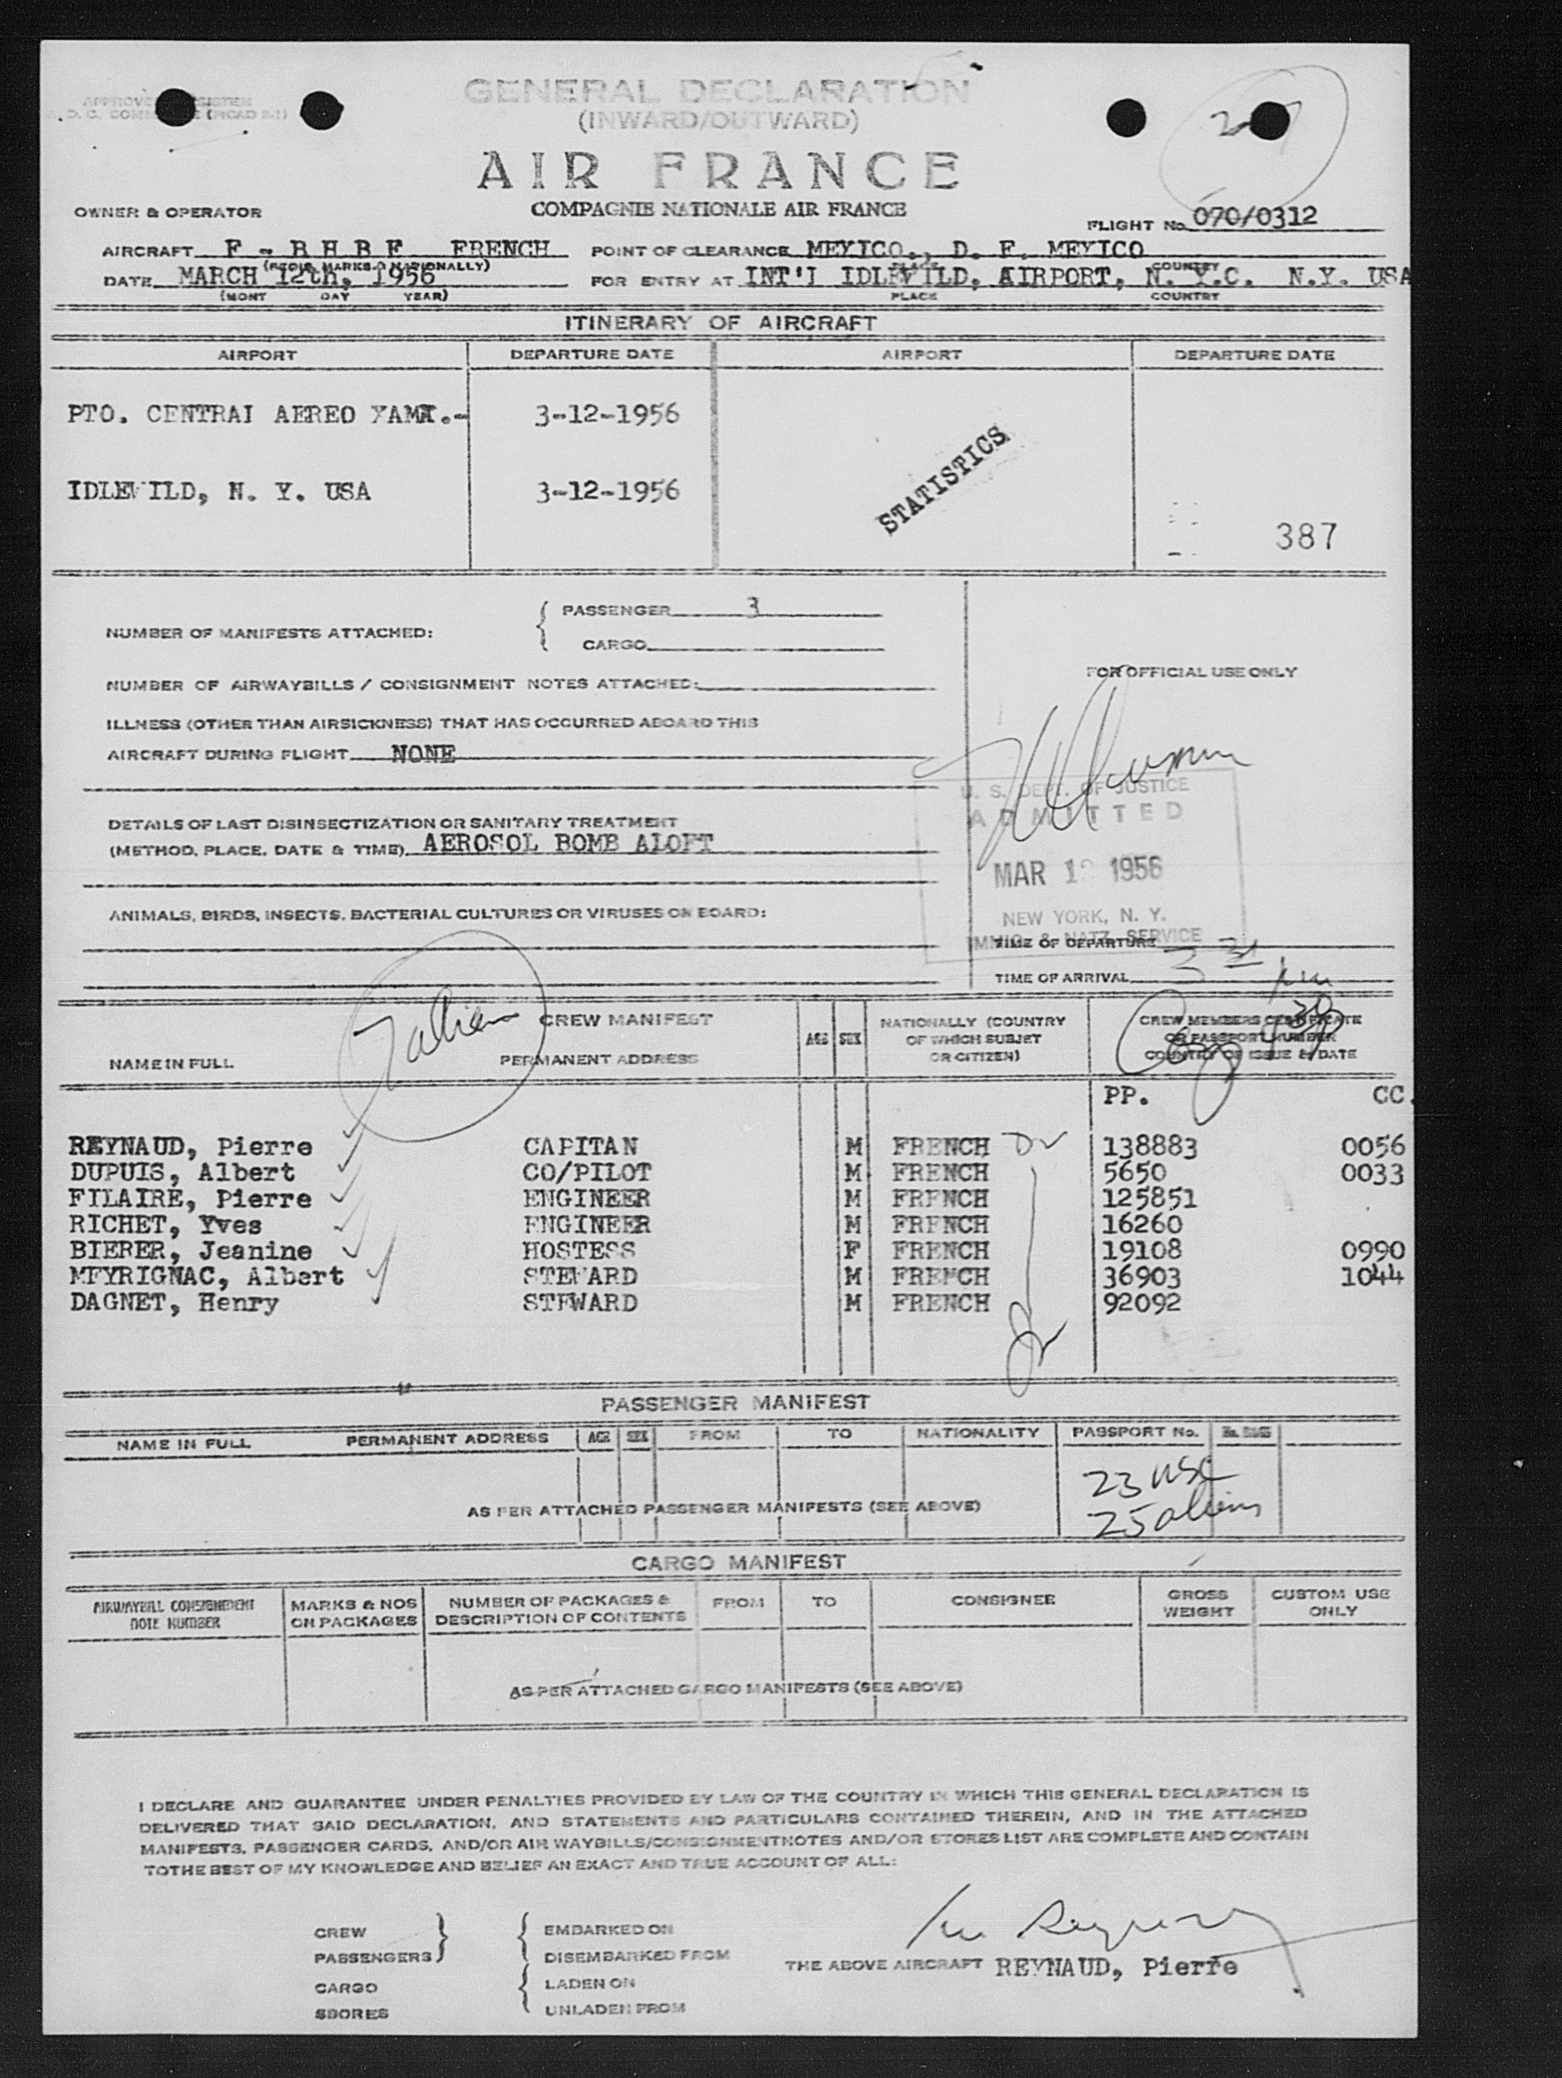 GENERAL DECLARATION
(INWARD/OUTWARD)
AIR FRANCE
OWNER & OPERATOR
COMPAGNIE NATIONALE AIR FRANCE
FLIGHT No. 070/0312
AIRCRAFT F - B H B F FRENCH POINT OF CLEARANCE MEXICO., D. F. MEXICO
DATE MARCH 12th, 1956 FOR ENTRY AT INT'L IDLEWILD, AIRPORT, N. Y.C. N.Y. USA
(MONT DAY YEAR) PLACE COUNTRY
ITINERARY OF AIRCRAFT
AIRPORT DEPARTURE DATE AIRPORT DEPARTURE DATE
PTO. CENTRAL AEREO 3-12-1956
IDLEWILD, N. Y. USA 3-12-1956
STATISTICS
387
NUMBER OF MANIFESTS ATTACHED: PASSENGER 3
CARGO
NUMBER OF AIRWAYBILLS / CONSIGNMENT NOTES ATTACHED:
FOR OFFICIAL USE ONLY
ILLNESS (OTHER THAN AIRSICKNESS) THAT HAS OCCURRED ABOARD THIS
AIRCRAFT DURING FLIGHT NONE
DETAILS OF LAST DISINSECTIZATION OR SANITARY TREATMENT
(METHOD, PLACE, DATE & TIME) AEROSOL BOMB ALOFT
U. S. DEPT. OF JUSTICE
ADMITTED
MAR 1 1956
NEW YORK, N. Y.
IMMIG. & NATZ. SERVICE
ANIMALS, BIRDS, INSECTS, BACTERIAL CULTURES OR VIRUSES ON BOARD:
TIME OF DEPARTURE
TIME OF ARRIVAL
CREW MANIFEST
NAME IN FULL PERMANENT ADDRESS AGE SEX NATIONALLY (COUNTRY OF WHICH SUBJET OR CITIZEN) CREW MEMBERS CERTIFICATE OR PASSPORT NUMBER COUNTRY OF ISSUE & DATE
PP. CC.
REYNAUD, Pierre CAPITAN M FRENCH 138883 0056
DUPUIS, Albert CO/PILOT M FRENCH 5650 0033
FILAIRE, Pierre ENGINEER M FRENCH 125851
RICHET, Yves ENGINEER M FRENCH 16260
BIERER, Jeanine HOSTESS F FRENCH 19108 0990
MEYRIGNAC, Albert STEWARD M FRENCH 36903 1044
DAGNET, Henry STEWARD M FRENCH 92092
PASSENGER MANIFEST
NAME IN FULL PERMANENT ADDRESS AGE SEX FROM TO NATIONALITY PASSPORT No.
23 USC
25 aliens
AS PER ATTACHED PASSENGER MANIFESTS (SEE ABOVE)
CARGO MANIFEST
AIRWAYBILL CONSIGNEMENT NOTE NUMBER MARKS & NOS ON PACKAGES NUMBER OF PACKAGES & DESCRIPTION OF CONTENTS FROM TO CONSIGNEE GROSS WEIGHT CUSTOM USE ONLY
AS PER ATTACHED CARGO MANIFESTS (SEE ABOVE)
I DECLARE AND GUARANTEE UNDER PENALTIES PROVIDED BY LAW OF THE COUNTRY IN WHICH THIS GENERAL DECLARATION IS
DELIVERED THAT SAID DECLARATION, AND STATEMENTS AND PARTICULARS CONTAINED THEREIN, AND IN THE ATTACHED
MANIFESTS, PASSENGER CARDS, AND/OR AIR WAYBILLS/CONSIGNMENTNOTES AND/OR STORES LIST ARE COMPLETE AND CONTAIN
TOTHE BEST OF MY KNOWLEDGE AND BELIEF AN EXACT AND TRUE ACCOUNT OF ALL:
CREW EMBARKED ON
PASSENGERS DISEMBARKED FROM
THE ABOVE AIRCRAFT REYNAUD, Pierre
CARGO LADEN ON
SDORES UNLADEN FROM